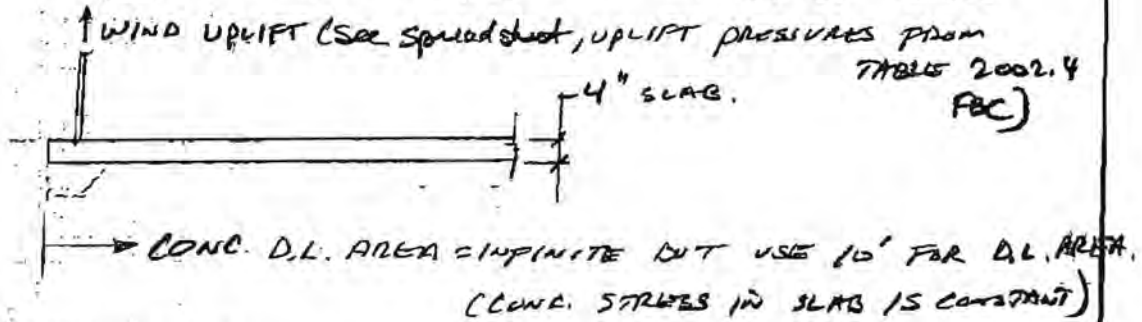 WIND UPLIFT (See spreadsheet, UPLIFT PRESSURES FROM
TABLE 2002.4
FBC)
4" SLAB.
CONC. D.L. AREA = INFINITE BUT USE 10' FOR D.L. AREA.
(CONC. STRESS IN SLAB IS CONSTANT)